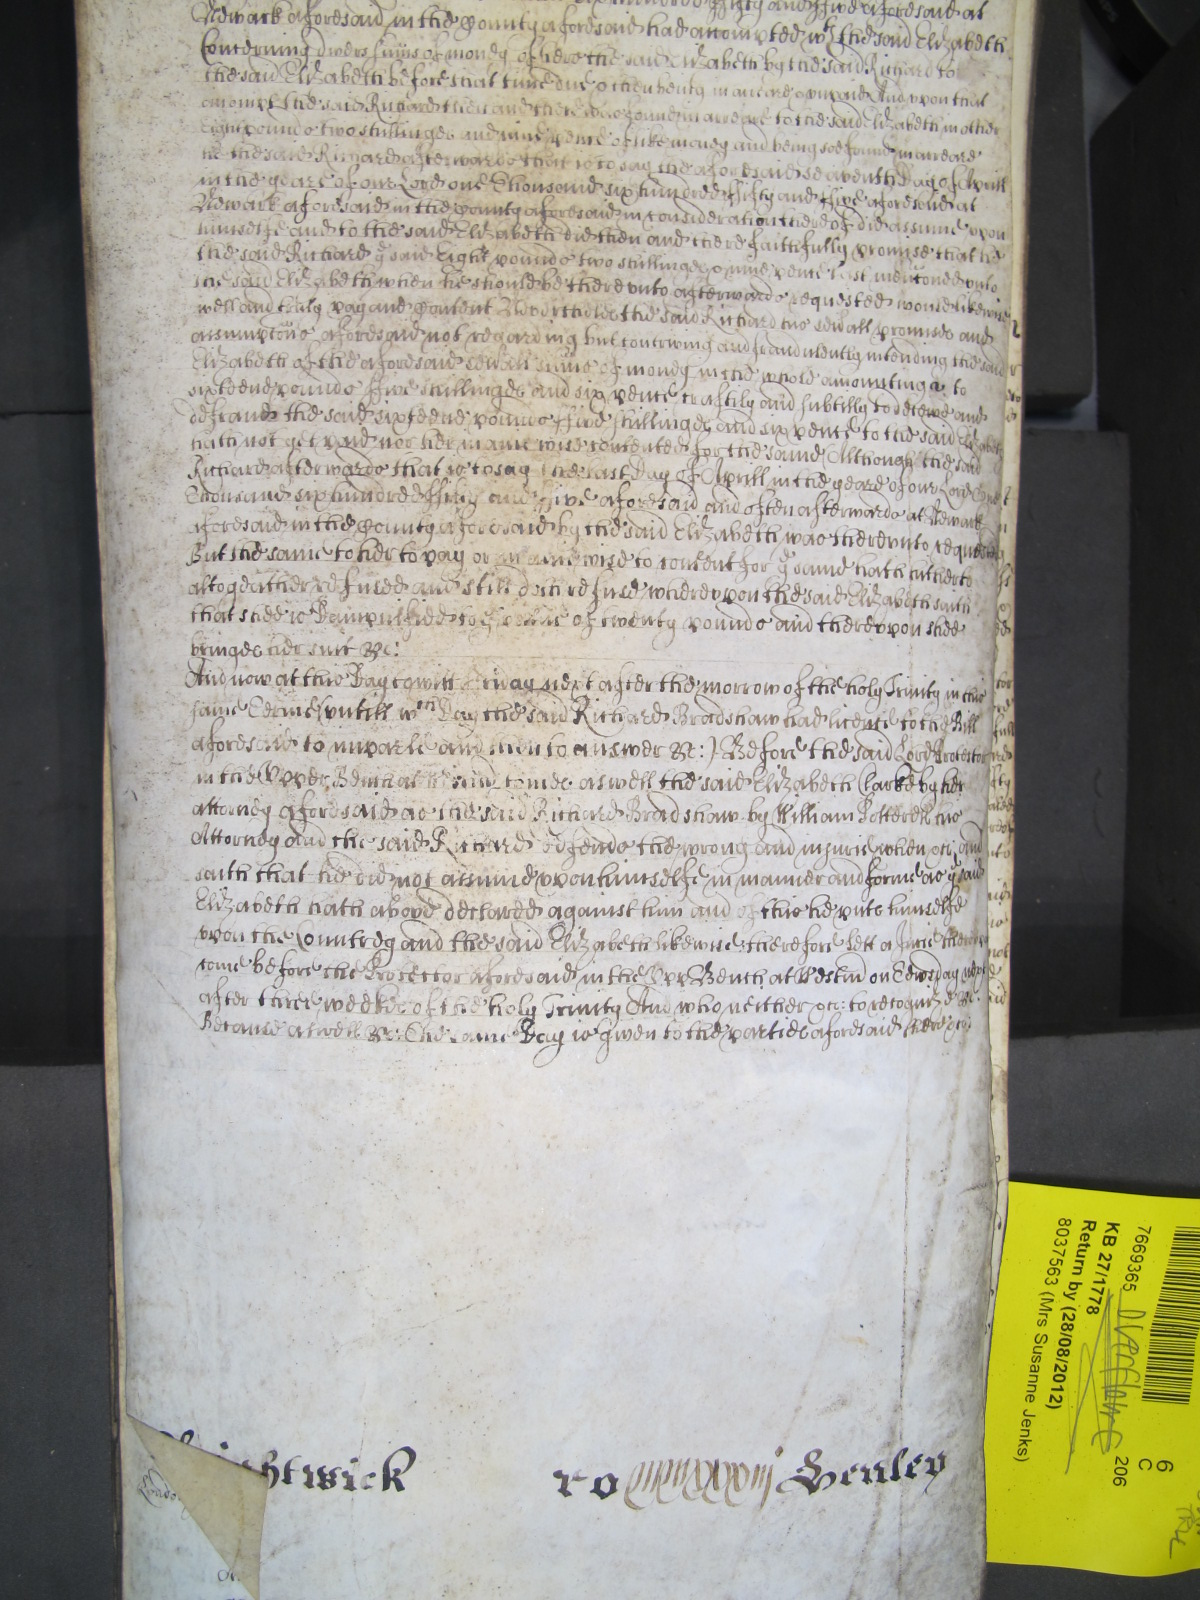 Newark aforesaid in the County aforesaid had accompted wth the said Elizabeth
Concerning divers sumes of money before the said Elizabeth by the said Richard to
the said Elizabeth before that time due & then being in arreare & unpaid And upon that
accompt the said Richard then and there was found in arreare to the said Elizabeth in other
Eight pounds two shillinges and nine pence of like money and being soe found in arreare
he the said Richard afterwards that is to say the aforesaid seaventh Day of Aprill
in the yeare of our Lord one Thousand six hundred ffifty and ffive aforesaid at
Newark aforesaid in the County aforesaid in consideration thereof did assume upon
himselfe and to the said Elizabeth did then and there faithfully promise that he
the said Richard ye said Eight pounds two shillinges & nine pence last menconed unto
the said Elizabeth when he should be thereunto afterwards requested would likewise
well and truly pay and Content Neverthelesse the said Richard his sevall promises and
assumptons aforesaid not regarding but contriving and fraudulently intending the said
Elizabeth of the aforesaid sevall sume of money in the whole amounting to
sixteene pounds ffive shillinges and six pence craftily and subtilly to deceive and
defraud the said sixteene pounds ffive shillinges and six pence to the said Elizabeth
hath not yet paid nor her in anie wise contented for the same Although the said
Richard afterwards that is to say the last Day of Aprill in the yeare of our Lord One
Thousand six hundred ffifty and ffive aforesaid and often afterwards at Newark
aforesaid in the County aforesaid by the said Elizabeth was thereunto requested
But the same to her to pay or in anie wise to content for ye same hath hitherto
altogeather refused and still doth refuse whereupon the said Elizabeth saith
that shee is Dampnified to ye value of twenty pounds and thereupon shee
bringes her suit &c:
And now at this Day to witt Friday next after the morrow of the holy Trinity in this
same Terme (untill wch Day the said Richard Bradshaw had licence to the Bill
aforesaid to imparle and then to answer &c:) Before the said Lord Protector
in the Upper Bench at Westmr comes aswell the said Elizabeth Clarke by her
attorney aforesaid as the said Richard Bradshaw by William Cotterell his
Attorney and the said Richard defends the wrong and injurie when &c: and
saith that he did not assume upon himselfe in manner and forme as ye said
Elizabeth hath above declared against him and of this he puts himselfe
upon the Countrey and the said Elizabeth likewise therefore lett a Jurie thereupon
come before the Protector aforesaid in the Uppr Bench at Westmr on Tewsday next
after three weekes of the holy Trinity And who neither &c: to recognize &c:
Because aswell &c: The same Day is given to the parties aforesaid there &c:
htwick ro Henley
7669365
KB 27/1778
Return by (28/08/2012)
8037563 (Mrs Susanne Jenks)
6
C
206